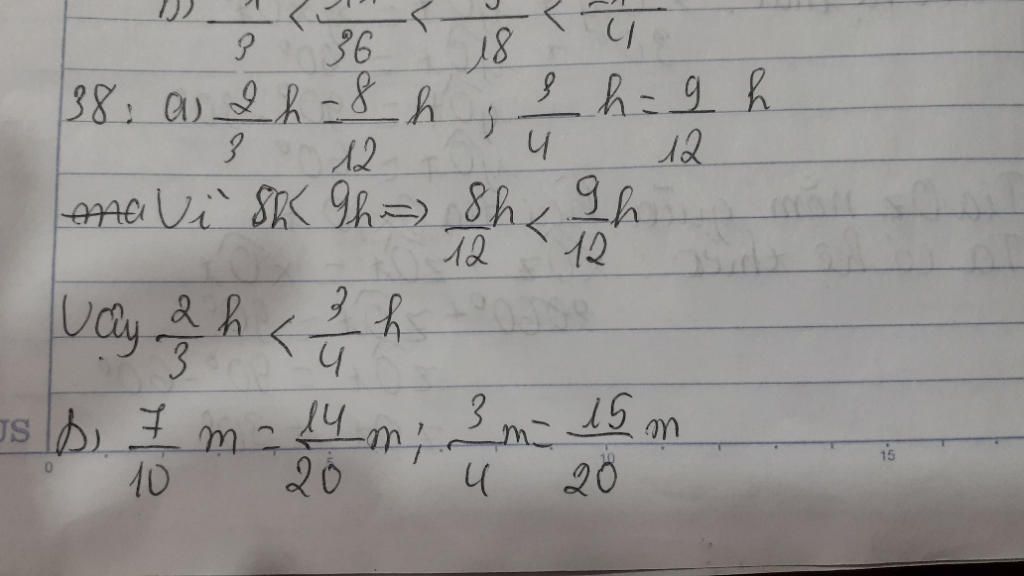 b) /3 < /36 < /18 < /4
38: a) 2/3 h = 8/12 h ; 3/4 h = 9/12 h
Vì 8h < 9h => 8/12 h < 9/12 h
Vậy 2/3 h < 3/4 h
b) 7/10 m = 14/20 m ; 3/4 m = 15/20 m
US 0 5 10 15